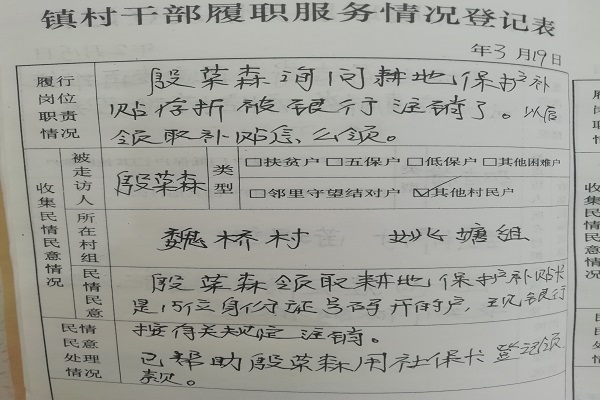 镇村干部履职服务情况登记表
年3月19日
履行岗位职责情况
殷菜森询问耕地保护补
贴存折被银行注销了。以后
领取补贴怎么领。
收集民情民意情况
被走访人
殷菜森
类型
□扶贫户 □五保户 □低保户 □其他困难户
□邻里守望结对户 ☑其他村民户
所在村组
魏桥村 塘组
民情民意
殷菜森领取耕地保护补贴卡
是15位身份证号码开的户,现各银行
按有关规定注销。
民情民意处理情况
已帮助殷菜森用社保卡登记领
款。